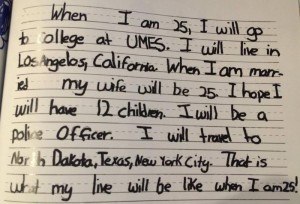 When I am 25, I will go
to college at UMES. I will live in
Los Angelos, California. When I am marr-
ied my wife will be 25. I hope I
will have 12 children. I will be a
police Officer. I will travel to
North Dakota, Texas, New York City. That is
what my live will be like when I am 25!